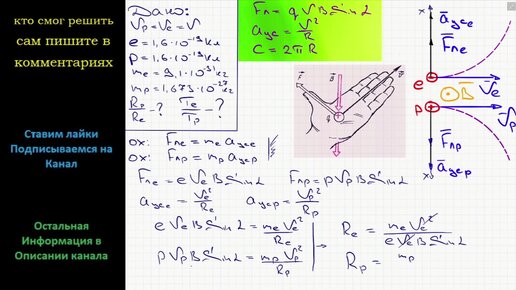 кто смог решить
сам пишите в
комментариях
Ставим лайки
Подписываемся на
Канал
Остальная
Информация в
Описании канала
Дано:
Vp = Ve = V
e = 1,6·10⁻¹⁹ Кл
p = 1,6·10⁻¹⁹ Кл
me = 9,1·10⁻³¹ кг
mp = 1,673·10⁻²⁷ кг
Rp/Re - ? Te/Tp - ?
Fл = q V B Sin L
aцс = V²/R
C = 2πR
ox: Fле = me aцсе
ox: Fлр = mp aцср
Fле = e Ve B Sin L Fлр = p Vp B Sin L
aцсе = Ve²/Re aцср = Vp²/Rp
e Ve B Sin L = me Ve²/Re
p Vp B Sin L = mp Vp²/Rp
Re = me Ve²/e Ve B Sin L
Rp = mp
x
aцсе
Fле
e
Ve
B
p
Vp
Fлр
aцср
x